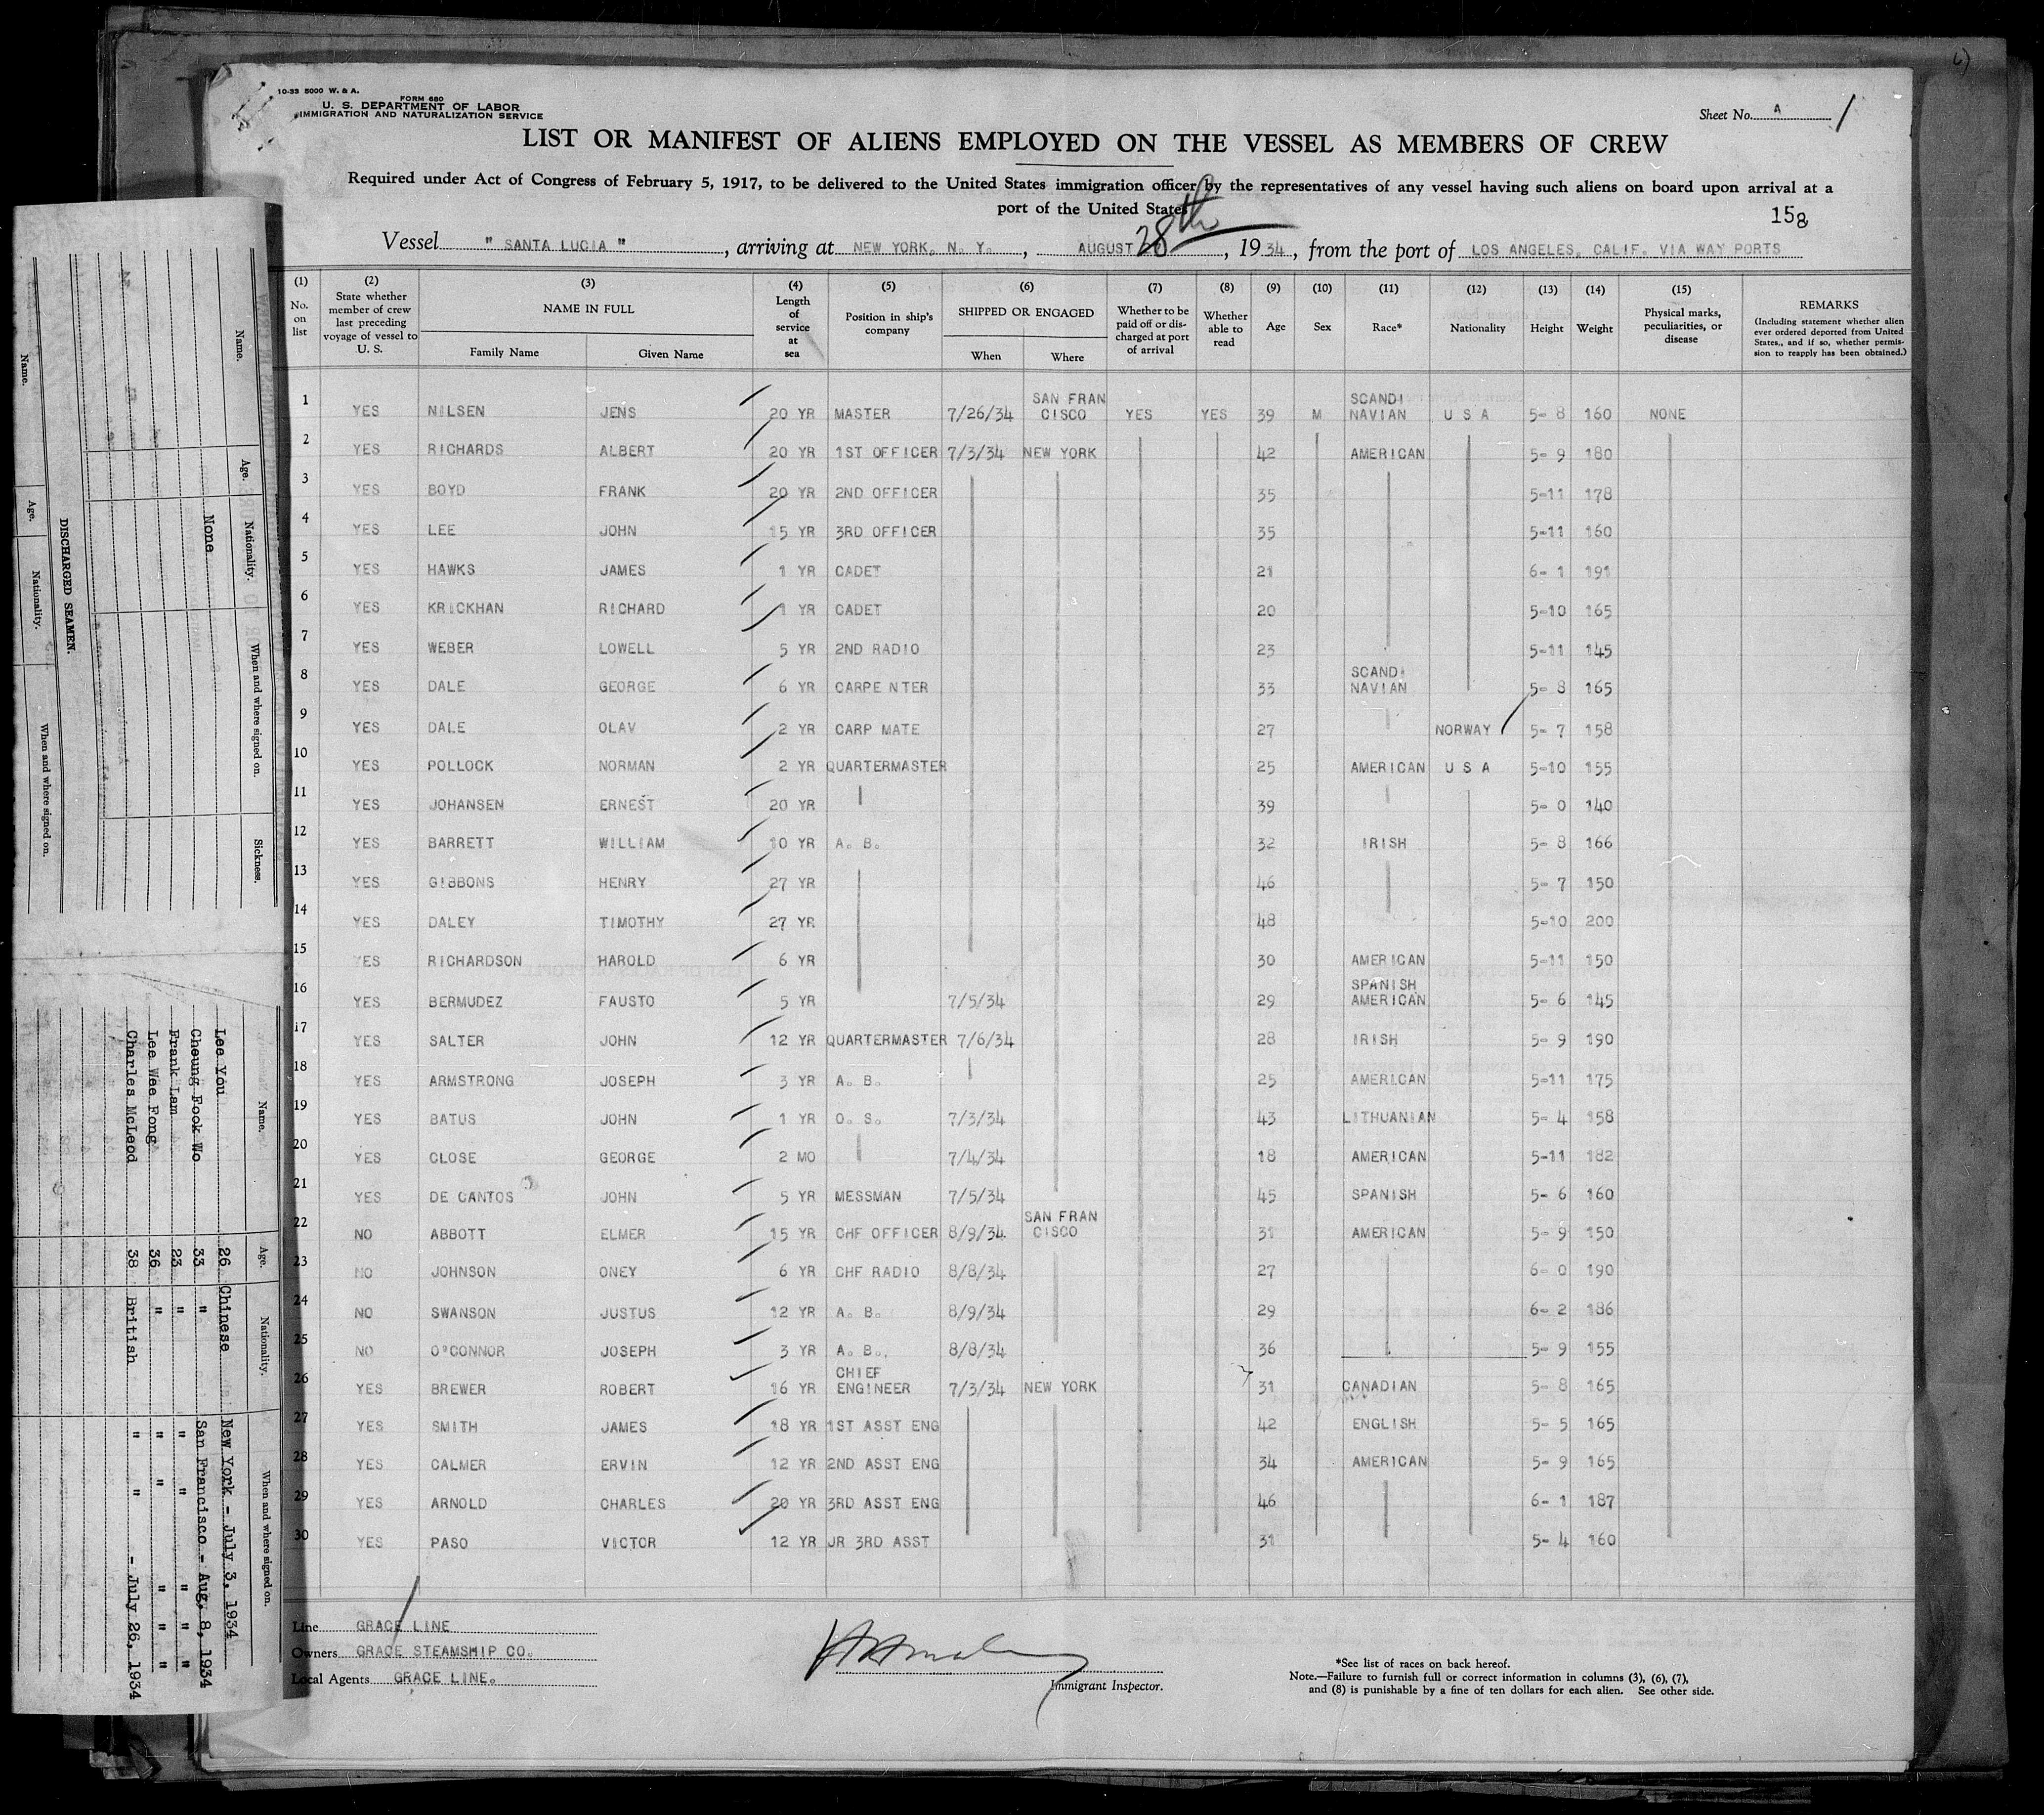 10-33 5000 W. & A.
FORM 680
U. S. DEPARTMENT OF LABOR
IMMIGRATION AND NATURALIZATION SERVICE
Sheet No. A 1
LIST OR MANIFEST OF ALIENS EMPLOYED ON THE VESSEL AS MEMBERS OF CREW
Required under Act of Congress of February 5, 1917, to be delivered to the United States immigration officer by the representatives of any vessel having such aliens on board upon arrival at a
port of the United States
158
Vessel " SANTA LUCIA ", arriving at NEW YORK, N. Y., AUGUST 28th, 1934, from the port of LOS ANGELES, CALIF. VIA WAY PORTS
(1) No. on list (2) State whether member of crew last preceding voyage of vessel to U. S. (3) NAME IN FULL Family Name Given Name (4) Length of service at sea (5) Position in ship's company (6) SHIPPED OR ENGAGED When Where (7) Whether to be paid off or discharged at port of arrival (8) Whether able to read (9) Age (10) Sex (11) Race* (12) Nationality (13) Height (14) Weight (15) Physical marks, peculiarities, or disease REMARKS (Including statement whether alien ever ordered deported from United States, and if so, whether permission to reapply has been obtained.)
1 YES NILSEN JENS 20 YR MASTER 7/26/34 SAN FRAN CISCO YES YES 39 M SCANDI NAVIAN U S A 5- 8 160 NONE
2 YES RICHARDS ALBERT 20 YR 1ST OFFICER 7/3/34 NEW YORK 42 AMERICAN 5- 9 180
3 YES BOYD FRANK 20 YR 2ND OFFICER 35 5-11 178
4 YES LEE JOHN 15 YR 3RD OFFICER 35 5-11 160
5 YES HAWKS JAMES 1 YR CADET 21 6- 1 191
6 YES KRICKHAN RICHARD 1 YR CADET 20 5-10 165
7 YES WEBER LOWELL 5 YR 2ND RADIO 23 5-11 145
8 YES DALE GEORGE 6 YR CARPE NTER 33 SCANDI NAVIAN 5- 8 165
9 YES DALE OLAV 2 YR CARP MATE 27 NORWAY 5- 7 158
10 YES POLLOCK NORMAN 2 YR QUARTERMASTER 25 AMERICAN U S A 5-10 155
11 YES JOHANSEN ERNEST 20 YR 39 5- 0 140
12 YES BARRETT WILLIAM 10 YR A. B. 32 IRISH 5- 8 166
13 YES GIBBONS HENRY 27 YR 46 5- 7 150
14 YES DALEY TIMOTHY 27 YR 48 5-10 200
15 YES RICHARDSON HAROLD 6 YR 30 AMERICAN 5-11 150
16 YES BERMUDEZ FAUSTO 5 YR 7/5/34 29 SPANISH AMERICAN 5- 6 145
17 YES SALTER JOHN 12 YR QUARTERMASTER 7/6/34 28 IRISH 5- 9 190
18 YES ARMSTRONG JOSEPH 3 YR A. B. 25 AMERICAN 5-11 175
19 YES BATUS JOHN 1 YR O. S. 7/3/34 43 LITHUANIAN 5- 4 158
20 YES CLOSE GEORGE 2 MO 7/4/34 18 AMERICAN 5-11 182
21 YES DE CANTOS JOHN 5 YR MESSMAN 7/5/34 45 SPANISH 5- 6 160
22 NO ABBOTT ELMER 15 YR CHF OFFICER 8/9/34 SAN FRAN CISCO 31 AMERICAN 5- 9 150
23 NO JOHNSON ONEY 6 YR CHF RADIO 8/8/34 27 6- 0 190
24 NO SWANSON JUSTUS 12 YR A. B. 8/9/34 29 6- 2 186
25 NO O'CONNOR JOSEPH 3 YR A. B. 8/8/34 36 5- 9 155
26 YES BREWER ROBERT 16 YR CHIEF ENGINEER 7/3/34 NEW YORK 31 CANADIAN 5- 8 165
27 YES SMITH JAMES 18 YR 1ST ASST ENG 42 ENGLISH 5- 5 165
28 YES CALMER ERVIN 12 YR 2ND ASST ENG 34 AMERICAN 5- 9 165
29 YES ARNOLD CHARLES 20 YR 3RD ASST ENG 46 6- 1 187
30 YES PASO VICTOR 12 YR JR 3RD ASST 31 5- 4 160
Line GRACE LINE
Owners GRACE STEAMSHIP CO.
Local Agents GRACE LINE.
Immigrant Inspector.
*See list of races on back hereof.
Note.—Failure to furnish full or correct information in columns (3), (6), (7),
and (8) is punishable by a fine of ten dollars for each alien. See other side.
Name. Age. Nationality. When and where signed on. Sickness.
None
DISCHARGED SEAMEN.
Name. Age. Nationality. When and where signed on.
Name. Age. Nationality. When and where signed on.
Lee You 26 Chinese New York - July 3, 1934
Cheung Fook Wo 33 " San Francisco - Aug. 8, 1934
Frank Lam 23 " " " " "
Lee Wee Fong 36 " " " " " "
Charles McLeod 38 British " " - July 26, 1934